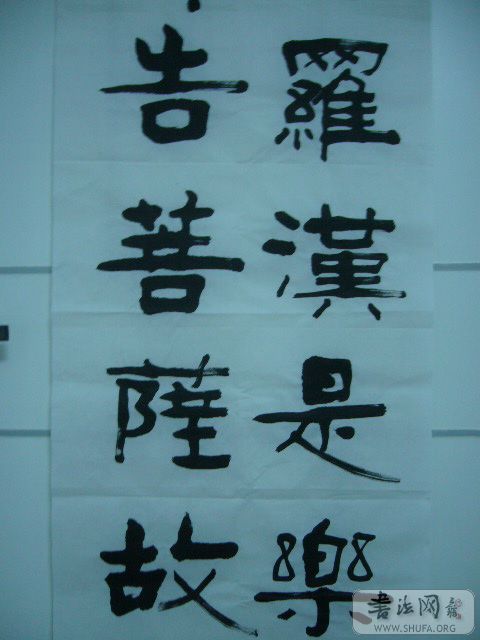 羅漢是樂
告菩薩故
書法网
WWW.SHUFA.ORG